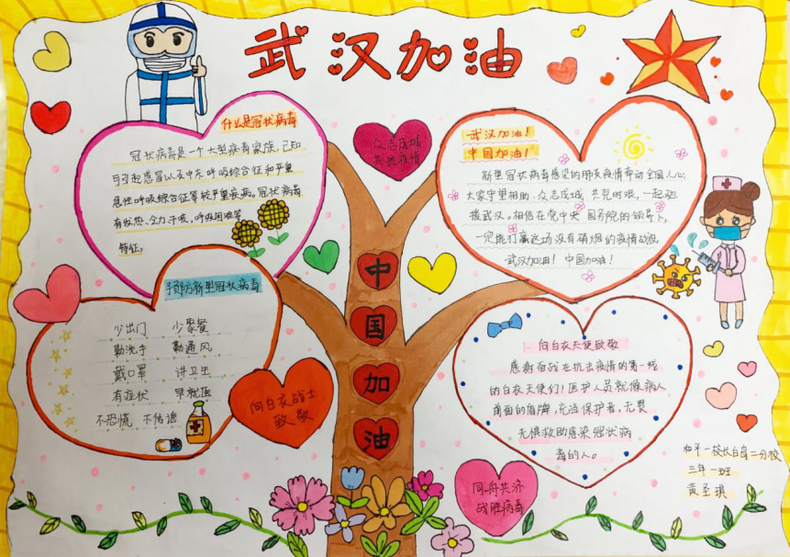 武汉加油
什么是冠状病毒
冠状病毒是一个大型病毒家族,已知
可引起感冒以及中东呼吸综合征和严重
急性呼吸综合征等较严重疾病。冠状病毒
有发热、乏力、干咳,呼吸困难等
特征。
众志成城
共抗疫情
武汉加油!
中国加油!
新型冠状病毒感染的肺炎疫情牵动全国人心
大家守望相助、众志成城、共克时艰,一起驰
援武汉。相信在党中央 国务院的领导下,
一定能打赢这场没有硝烟的疫情动役。
武汉加油! 中国加油!
预防新型冠状病毒
少出门 少聚餐
勤洗手 勤通风
戴口罩 讲卫生
有症状 早就医
不恐慌 不传谣
向白衣战士
致敬
中
国
加
油
向白衣天使致敬
感谢奋战在抗击疫情的第一线
的白衣天使们!医护人员就像病人
前面的盾牌,充当保护者,无畏
无惧救助感染冠状病
毒的人。
同舟共济
战胜病毒
和平一校长白岛二分校
三年一班
黄圣琪